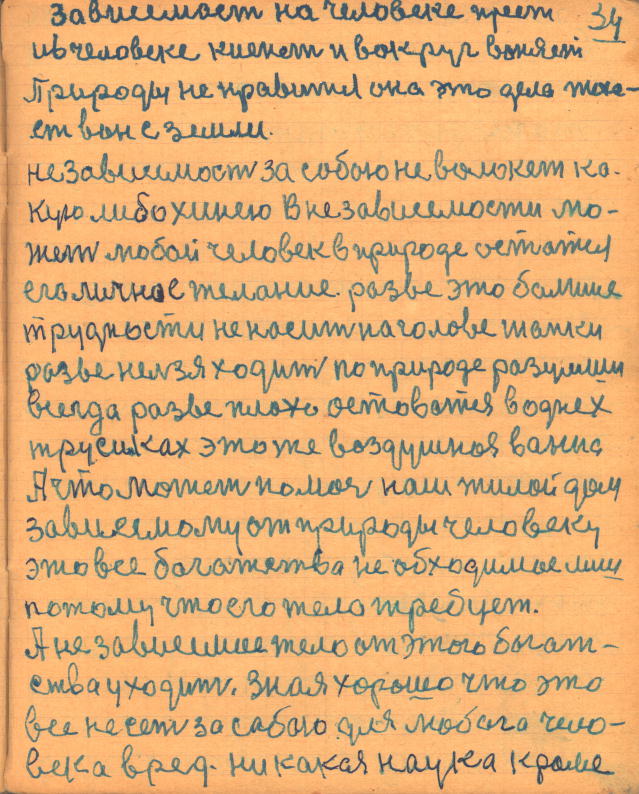 34
Зависимост на человеке прет
из человеке кипит и вокруг воняет
Природы не нравится она это дела тже-
ет вон с земли.
независимост за собою не воложет ка.
кую либо хинею В независимости мо-
жет любой человек в природе остатся
его личное желание. разве это болше
трудности не носит на голове шапки
разве нелзя ходит по природе разумши
всегда разве плохо оставатся в однех
трусиках это же воздушноя ванна
А что может помоч наш жилой дом
зависимому от природы человеку
это все богатства необходимое лиш
потому что его тело требует.
А не зависимое тело от этого богат-
ства уходит. Зная хорошо что это
все несет за собою для любога чело-
века вред. никакая наука кроме